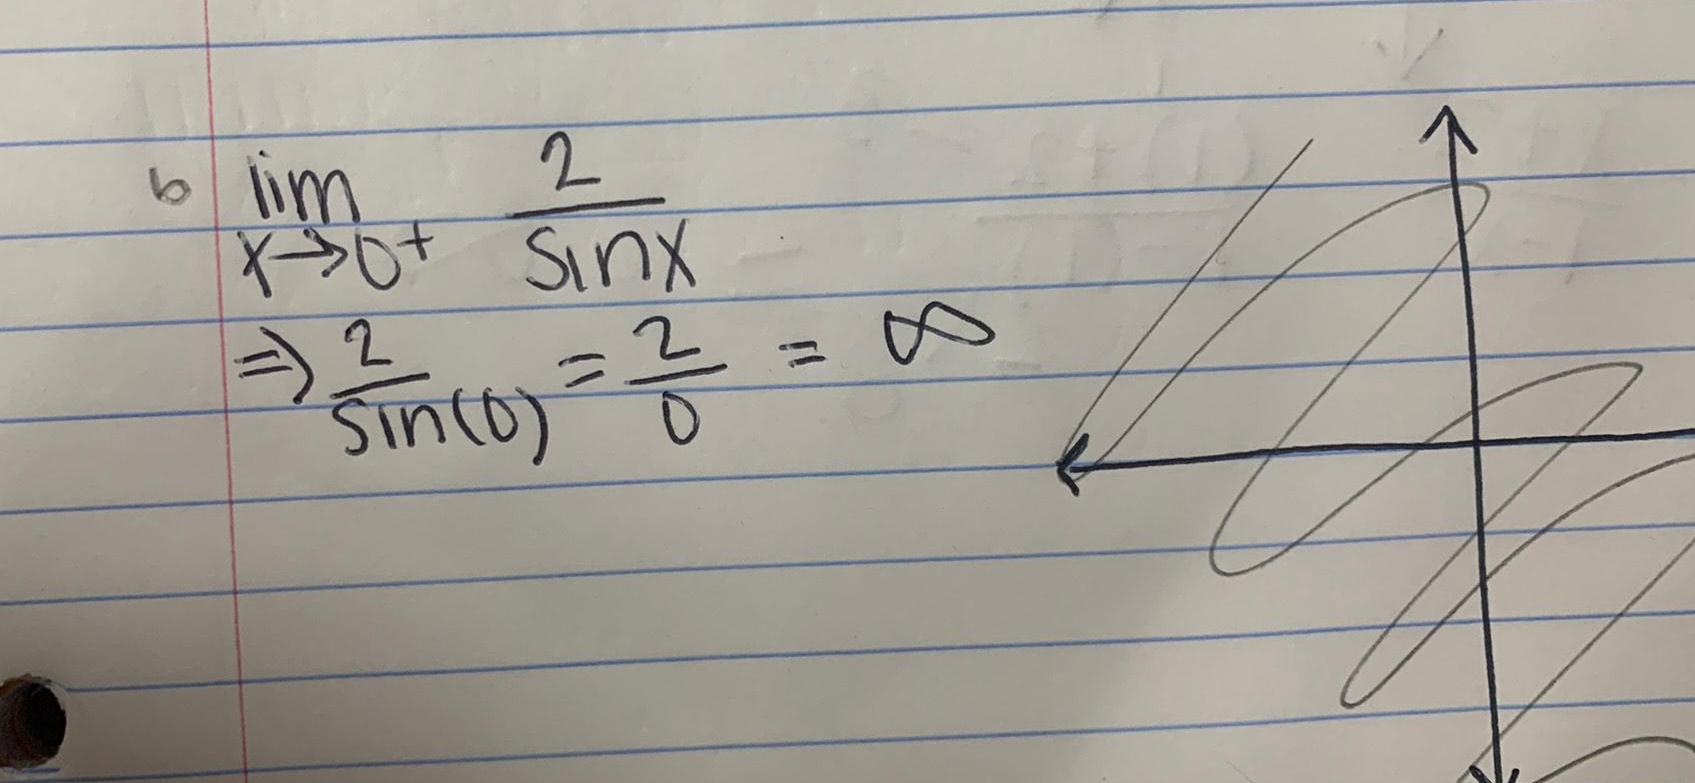 b lim x→0⁺ 2/sinx
⇒ 2/sin(0) = 2/0 = ∞